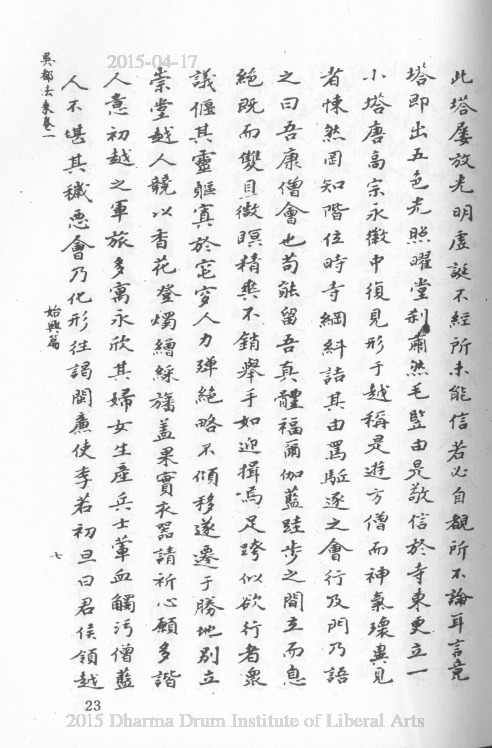 此塔屢放光明虛誕不經所未能信若必自覩所不論耳言竟
塔即出五色光照曜堂刹肅然毛竪由是敬信於寺東更立一
小塔唐高宗永徽中復見形于越稱是遊方僧而神氣瓌異見
者悚然罔知階位時寺綱糾詰其由罵駈逐之會行及門乃語
之曰吾康僧會也苟能留吾真體福爾伽藍跬步之間立而息
絕既而雙目微瞑精爽不銷舉手如迎揖焉足跨似欲行者衆
議偃其靈軀寘於窀穸人力殫絕略不傾移遂遷于勝地別立
崇堂越人競以香花登燭繒綵旛盖果實衣器請祈心願多諧
人意初越之軍旅多寓永欣其婦女生產兵士葷血觸污僧藍
人不堪其穢惡會乃化形往謁閩廉使李若初旦曰君侯領越
吳都法乘卷一
始興篇
七
23
2015-04-17
2015 Dharma Drum Institute of Liberal Arts